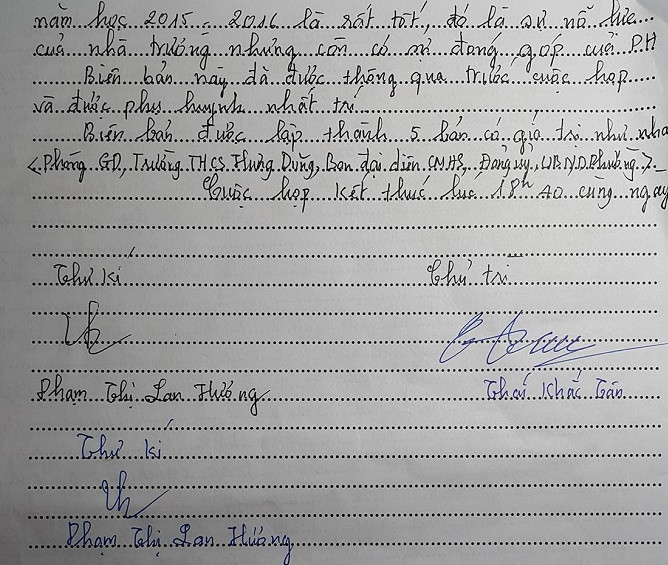 năm học 2015 - 2016 là rất tốt, đó là sự nỗ lực
của nhà trường nhưng còn có sự đóng góp của PH
Biên bản này đã được thông qua trước cuộc họp
và được phụ huynh nhất trí.
Biên bản được lập thành 5 bản có giá trị như nhau
<Phòng GD, Trường THCS Hưng Dũng, Ban đại diện CMHS, Đảng ủy, UBND Phường>
Cuộc họp kết thúc lúc 18h40 cùng ngày
Thư kí Chủ trì
Phạm Thị Lan Hương Thái Khắc Tân
Thư kí
Phạm Thị Lan Hương